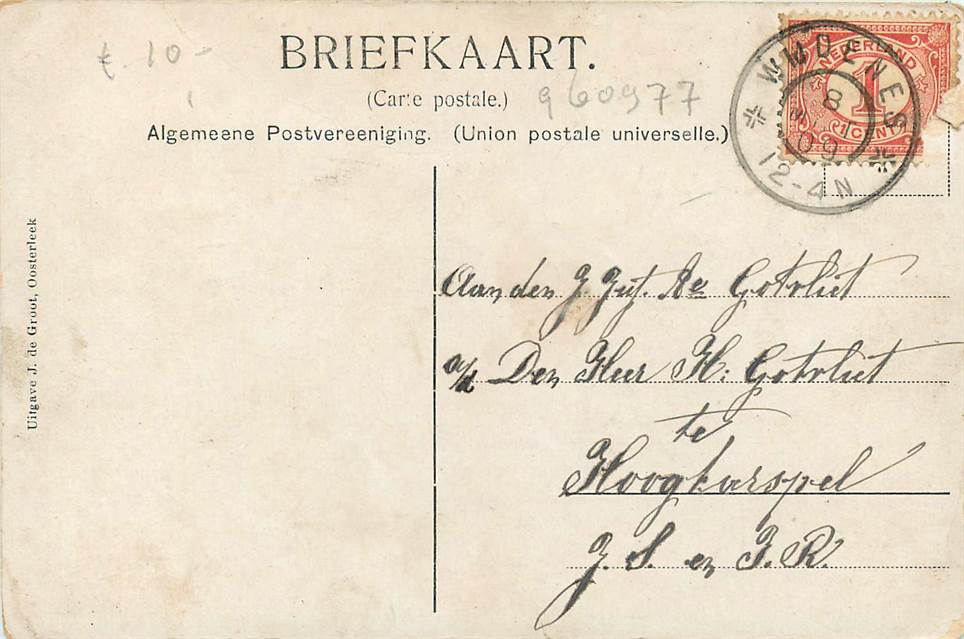 f. 10-
BRIEFKAART.
(Carte postale.)
960977
Algemeene Postvereeniging. (Union postale universelle.)
NEDERLAND
1
CENT
WIJDENES
8
09
12-4N
Uitgave J. de Groot, Oosterleek
Aan den Z. Gotvliet
a/d Den Heer H: Gotvliet
te
Hoogkarspel
en